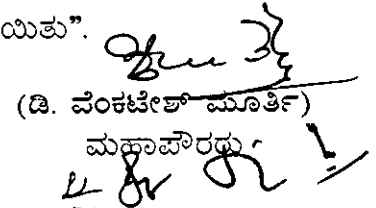 ಯಿತು”.
(ಡಿ. ವೆಂಕಟೇಶ್ ಮೂರ್ತಿ)
ಮಹಾಪೌರರು